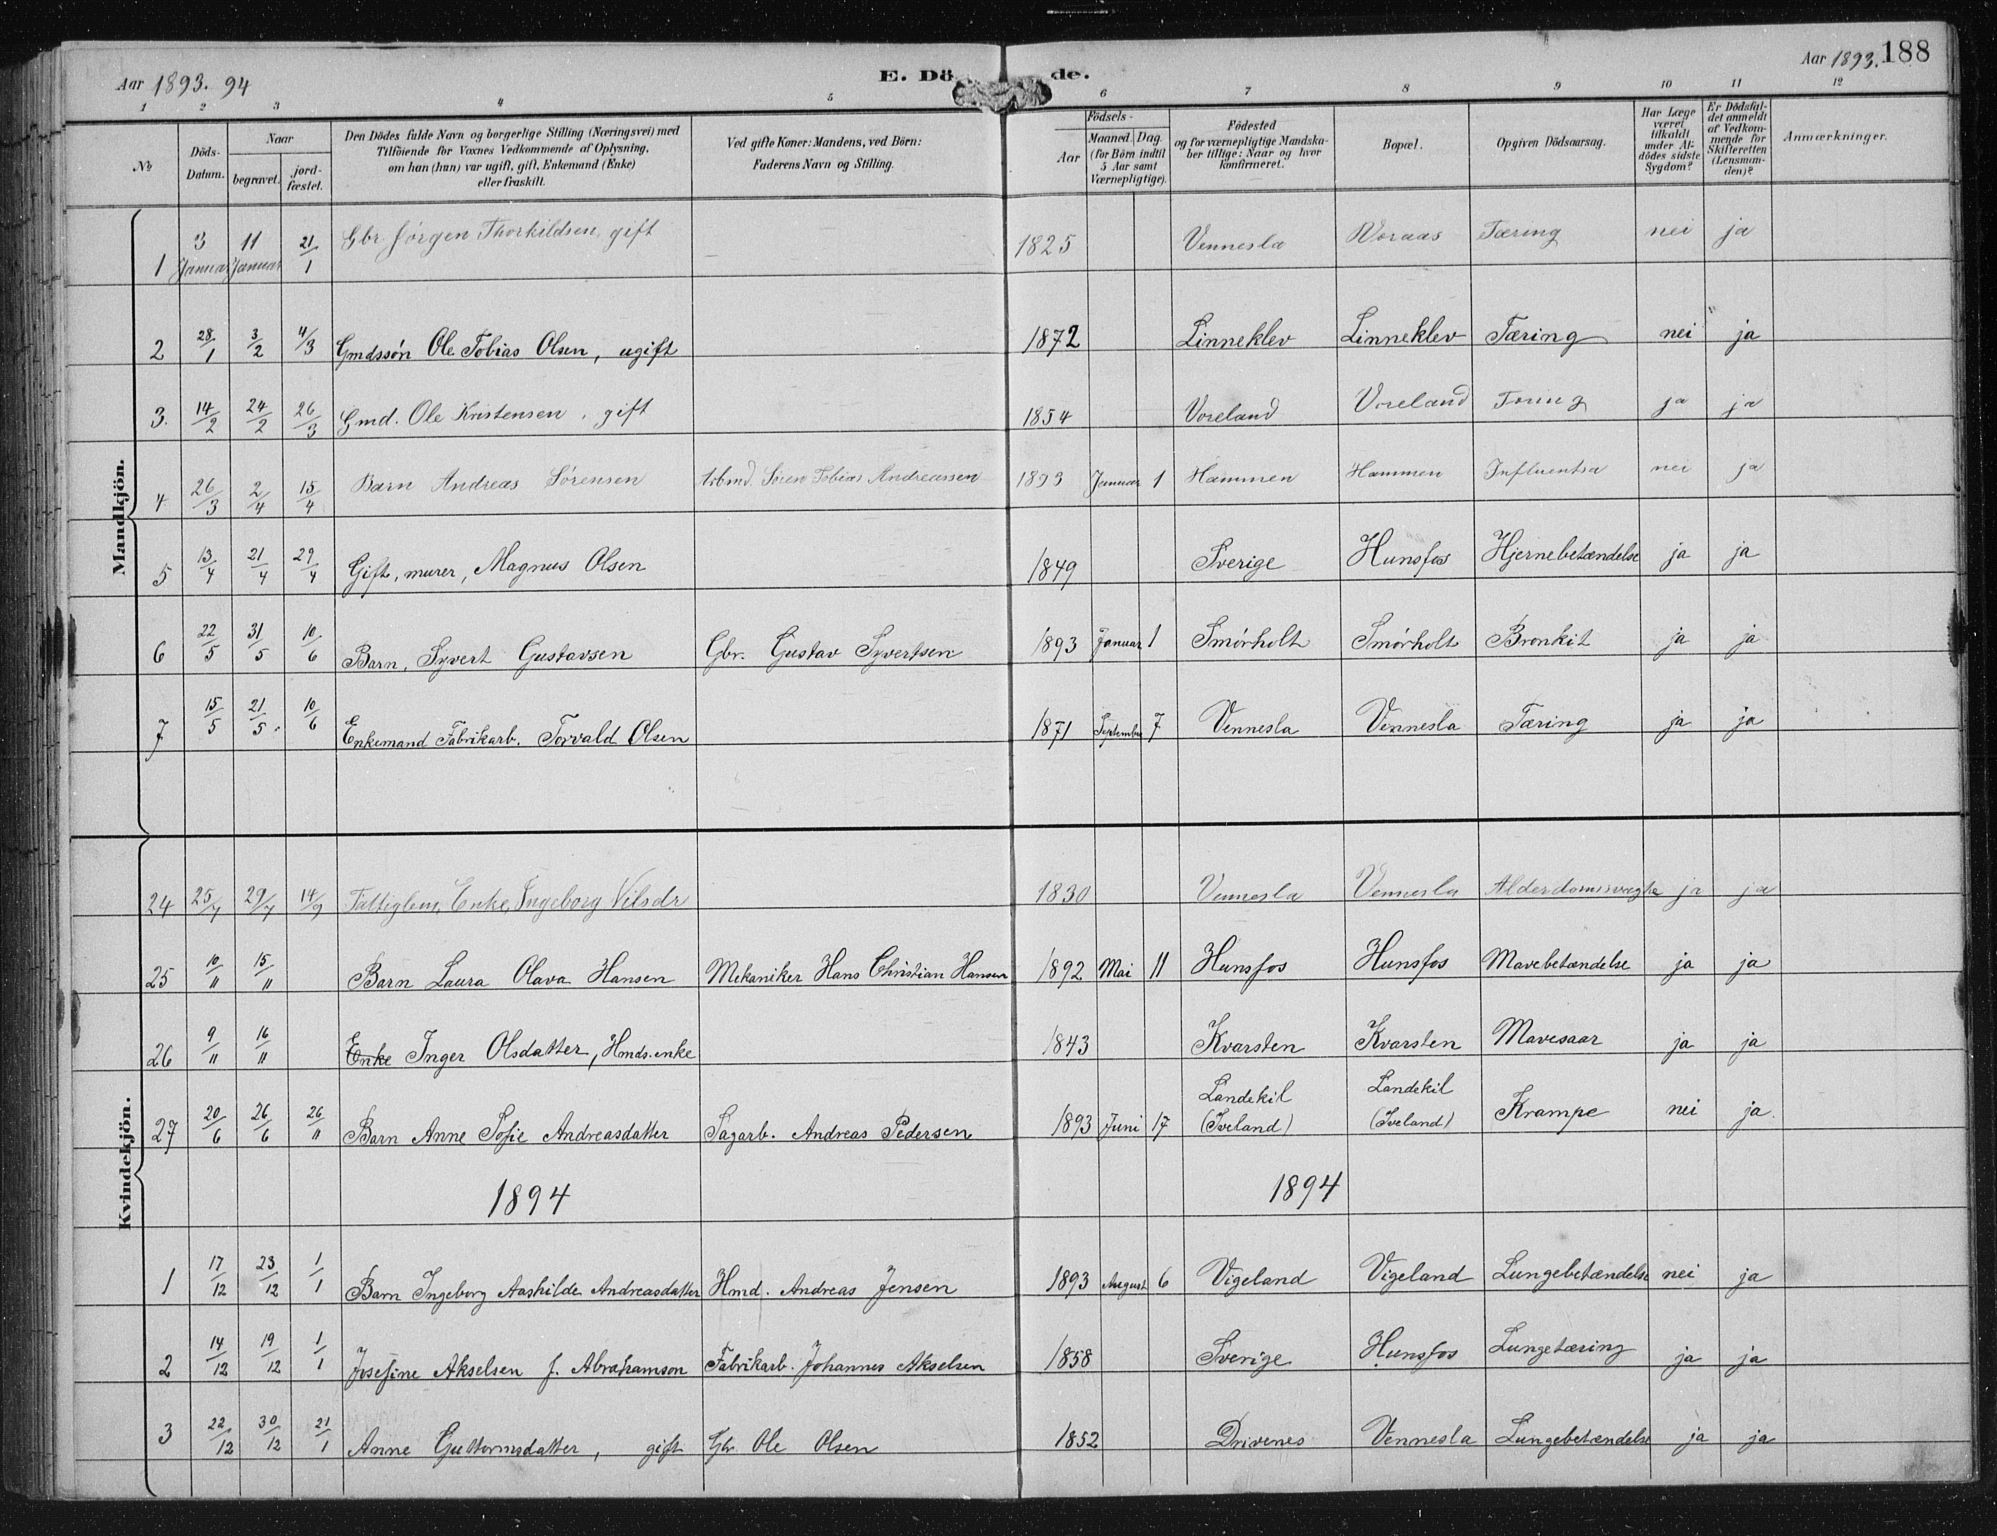 Aar 1893. 94 E. Dö de. Aar 1893. 188
1 2 3 4 5 6 7 8 9 10 11 12
No. Döds-Datum. Naar begravet. jordfæstet. Den Dödes fulde Navn og borgerlige Stilling (Næringsvei) med Tilföiende for Voxnes Vedkommende af Oplysning, om han (hun) var ugift, gift, Enkemand (Enke) eller fraskilt. Ved gifte Koner: Mandens, ved Börn: Faderens Navn og Stilling. Födsels- Aar Maaned. Dag. (for Börn indtil 5 Aar samt Værnepligtige). Födested og for værnepligtige Mandskaber tillige: Naar og hvor konfirmeret. Bopæl. Opgiven Dödsaarsag. Har Læge været tilkaldt under Afdödes sidste Sygdom? Er Dödsfaldet anmeldt af Vedkommende for Skifteretten (Lensmanden)? Anmærkninger.
Mandkjön.
1 3 Januar 11 Januar 21/1 Gbr Jörgen Thorkildsen, gift 1825 Vennesla Moraas Tæring nei ja
2 28/1 3/2 4/3 Gmdssøn Ole Tobias Olsen, ugift 1872 Linneklev Linneklev Tæring nei ja
3. 14/2 24/2 26/3 Gmd. Ole Kristensen, gift 1854 Voreland Voreland Tæring ja ja
4 26/3 2/4 15/4 Barn Andreas Sørensen Arbmd. Søren Tobias Andreassen 1893 Januar 1 Hammen Hammen Influentsa nei ja
5 13/4 21/4 29/4 Gift, murer, Magnus Olsen 1849 Sverige Hunsfos Hjernebetændelse ja ja
6 22/5 31/5 10/6 Barn, Syvert Gustavsen Gbr. Gustav Syvertsen 1893 Januar 1 Smørholt Smørholt Bronkit ja ja
7 15/5 21/5 10/6 Enkemand Fabrikarb. Torvald Olsen 1871 September 7 Vennesla Vennesla Tæring ja ja
Kvindekjön.
24 25/7 29/7 14/9 Fattiglem, Enke, Ingeborg Nilsdr 1830 Vennesla Vennesla Alderdomssvaghe ja ja
25 10/11 15/11 Barn Laura Olava Hansen Mekaniker Hans Christian Hansen 1892 Mai 11 Hunsfos Hunsfos Mavebetændelse ja ja
26 9/11 16/11 Enke Inger Olsdatter, Hmds. enke 1843 Kvarsten Kvarsten Mavesaar ja ja
27 20/6 26/6 26/11 Barn Anne Sofie Andreasdatter Sagarb. Andreas Pedersen 1893 Juni 17 Landekil (Iveland) Landekil (Iveland) Krampe nei ja.
1894 1894
1 17/12 23/12 1/1 Barn Ingeborg Aashilde Andreasdatter Hmd. Andreas Jensen 1893 August 6 Vigeland Vigeland Lungebetændelse nei ja
2 14/12 19/12 1/1 Josefine Akselsen f. Abrahamson Fabrikarb. Johannes Akselsen 1858 Sverige Hunsfos Lungetæring ja ja
3 22/12 30/12 21/1 Anne Guttormsdatter, gift Gbr. Ole Olsen 1852 Drivenes Vennesla Lungebetændelse ja ja